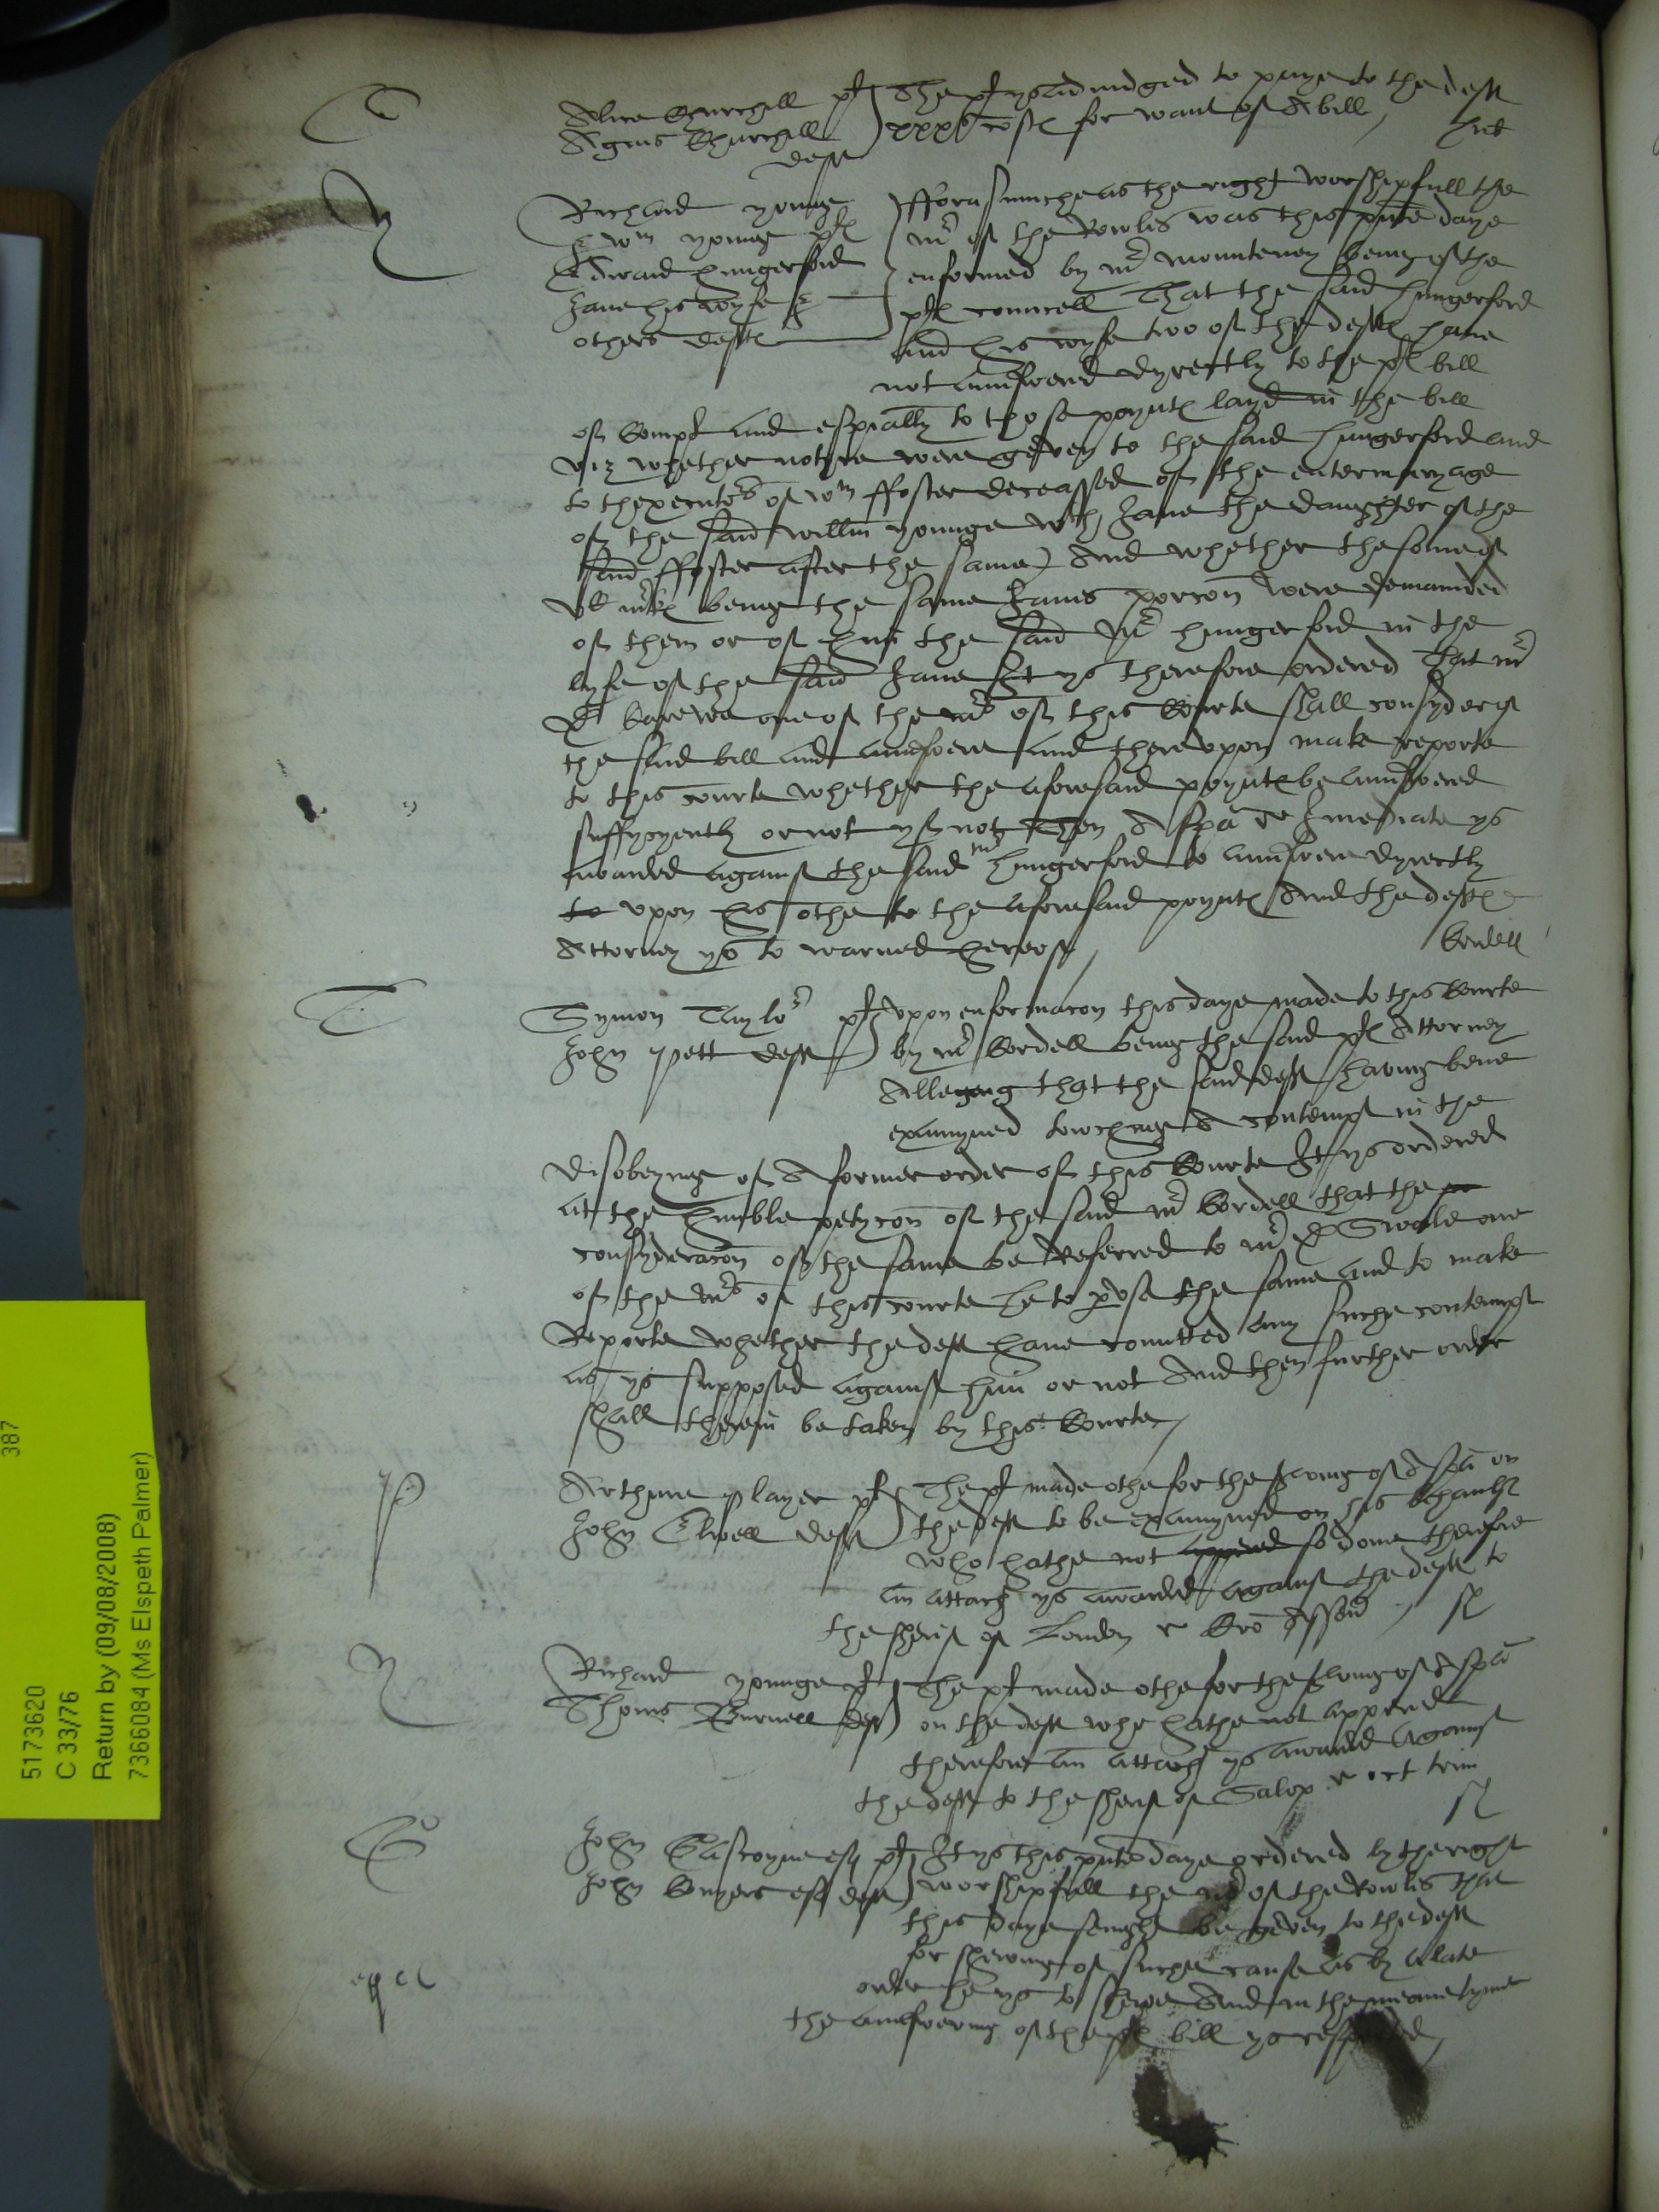 C
Alice Churchill pt The pt ys adiudged to paye to the deft
Agnes Churchill deft xxxs costes for want of A bill
Y
Richard younge fforasmuche as the right worshipfull the
& Wm younge ptes Mr of the Rowles was this pnte daye
Edward hungerford enformed by Mr Mounteney being of the
Jane his wyfe & ptes councell That the said hungerford
others deftes and his wyfe two of the deftes haue
not aunswered dyrectly to the ptes bill
of Compt and espially to those poyntes layd in the bill
viz whether notyce were geven to the said hungerford and
to thexecutors of Wm ffoster deceassed of the entermaryage
of the said Willm younge wth Jane the daughter of the
said ffoster after the same And whether the some of
vC mrkes being the same Janes porcon were demaunded
of them or of him the said Mr hungerford in the
lyfe of the said Jane It ys therefore ordered That Mr
D Carewe one of the Mrs of this Courte shall consyder of
the said bill and aunswere and thereupon make reporte
to this courte whether the aforesaid poyntes be aunswered
suffycyently or not yf not Then A spa r Imediate ys
awarded against the said Mr hungerford to aunswere dyrectly
to upon his othe to the aforesaid poyntes And the deftes
Attorney ys to warned hereof Cordell
T
Symon Taylor pt Upon enformacon this daye made to this Courte
John Pett deft by Mr Cordell being the said ptes Attorney
Alleging that the said deft having bene
examyned towching A contempt in the
disobeying of A former order of this Courte It ys ordered
at the humble petycon of the said Mr Cordell that the
consyderacon of the same be Referred to Mr D Swale one
of the Mrs of this courte he to pvse the same and to make
Reporte whether the deft haue comitted any suche contempt
as ys supposed against him or not And then further order
shall therein be taken by this Courte
P
Arthure Player pt The pt made othe for the serving of A spa on
John Elwell deft the deft to be examyned on his behaulf
who hathe not appered so done therefore
an attach ys awarded against the deft to
the sherif of London r Cro Assenc
Y
Richard younge pt The pt made othe for the serving of A spa
Thoms Burnell deft on the deft who hathe not appered
therefore an attach ys awarded against
the deft to the sherif of Salop r oct trin
G
John Gascoyne esq pt It ys this pnte daye ordered by the right
John Conyers esq deft worshipfull the Mr of the Rowles That
this daye senight be geven to the deft
for shewing of suche cause as by A late
order he ys to shewe And in the meane tyme
the aunswering of the ptes bill ys respected
387
5173620
C 33/76
Return by (09/08/2008)
7366084 (Ms Elspeth Palmer)